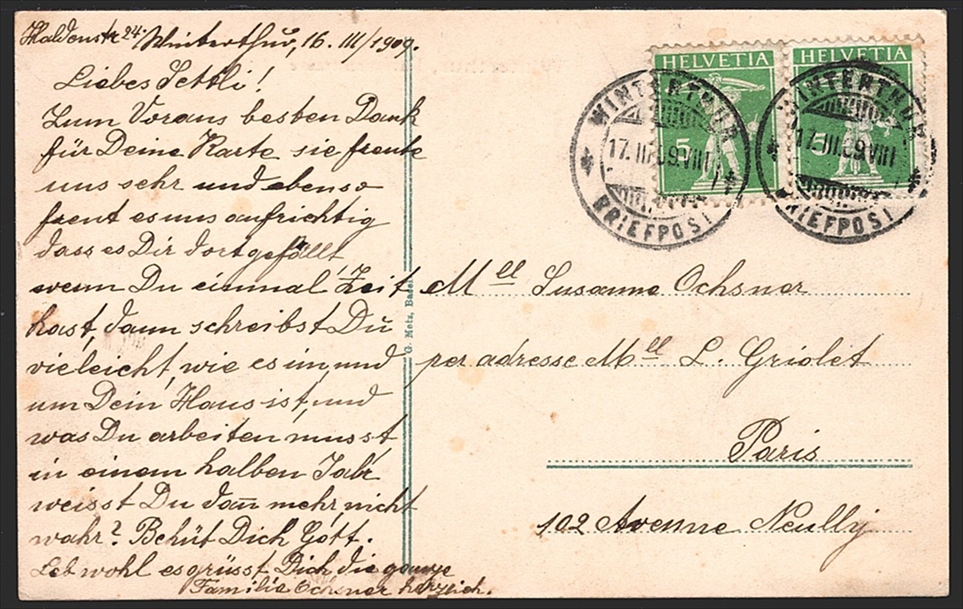 Haldenstr 24. Winterthur, 16. III/1909.
Liebes Settli!
Zum Voraus besten Dank
für Deine Karte sie freute
uns sehr und ebenso
freut es uns aufrichtig
dass es Dir dort gefällt
wenn Du einmal Zeit
hast, dann schreibst Du
vieleicht, wie es im, und
um Dein Haus ist, und
was Du arbeiten musst
in einem halben Jahr
weisst Du dan̅ mehr, nicht
wahr? Behüt Dich Gott.
Leb wohl es grüsst Dich die ganze
Familie Ochsner herzlich.
G. Metz, Basel
HELVETIA
5
HELVETIA
5
WINTERTHUR
17.III.09.VIII
BRIEFPOST
WINTERTHUR
17.III.09.VIII
BRIEFPOST
Mell Susanne Ochsner
per adresse Mell L. Griolet
Paris
102 Avenue Neully